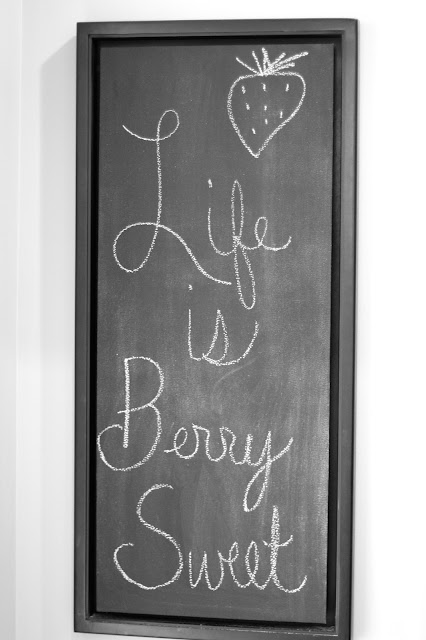 Life
is
Berry
Sweat